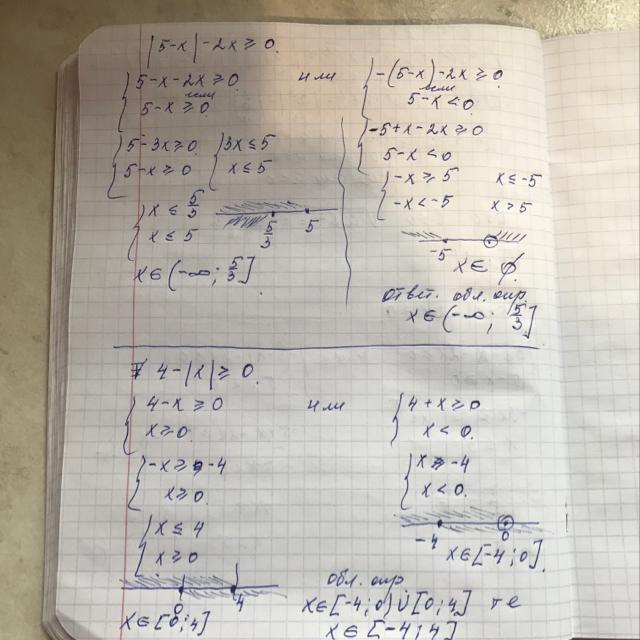 |5-x|-2x≥0.
5-x-2x≥0
если
5-x≥0
или
-(5-x)-2x≥0
если
5-x<0
5-3x≥0
5-x≥0
3x≤5
x≤5
-5+x-2x≥0
5-x<0
x≤5/3
x≤5
5/3 5
x∈(-∞; 5/3]
-x≥5 x≤-5
-x<-5 x>5
-5
x∈ ∅
ответ. обл. опр.
x∈(-∞; 5/3]
4-|x|≥0.
4-x≥0
x≥0.
или
4+x≥0
x<0.
-x≥-4
x≥0.
x≥-4
x<0.
x≤4
x≥0
-4 0
x∈[-4;0).
0 4
x∈[0;4]
обл. опр
x∈[-4;0)∪[0;4] те
x∈[-4;4]